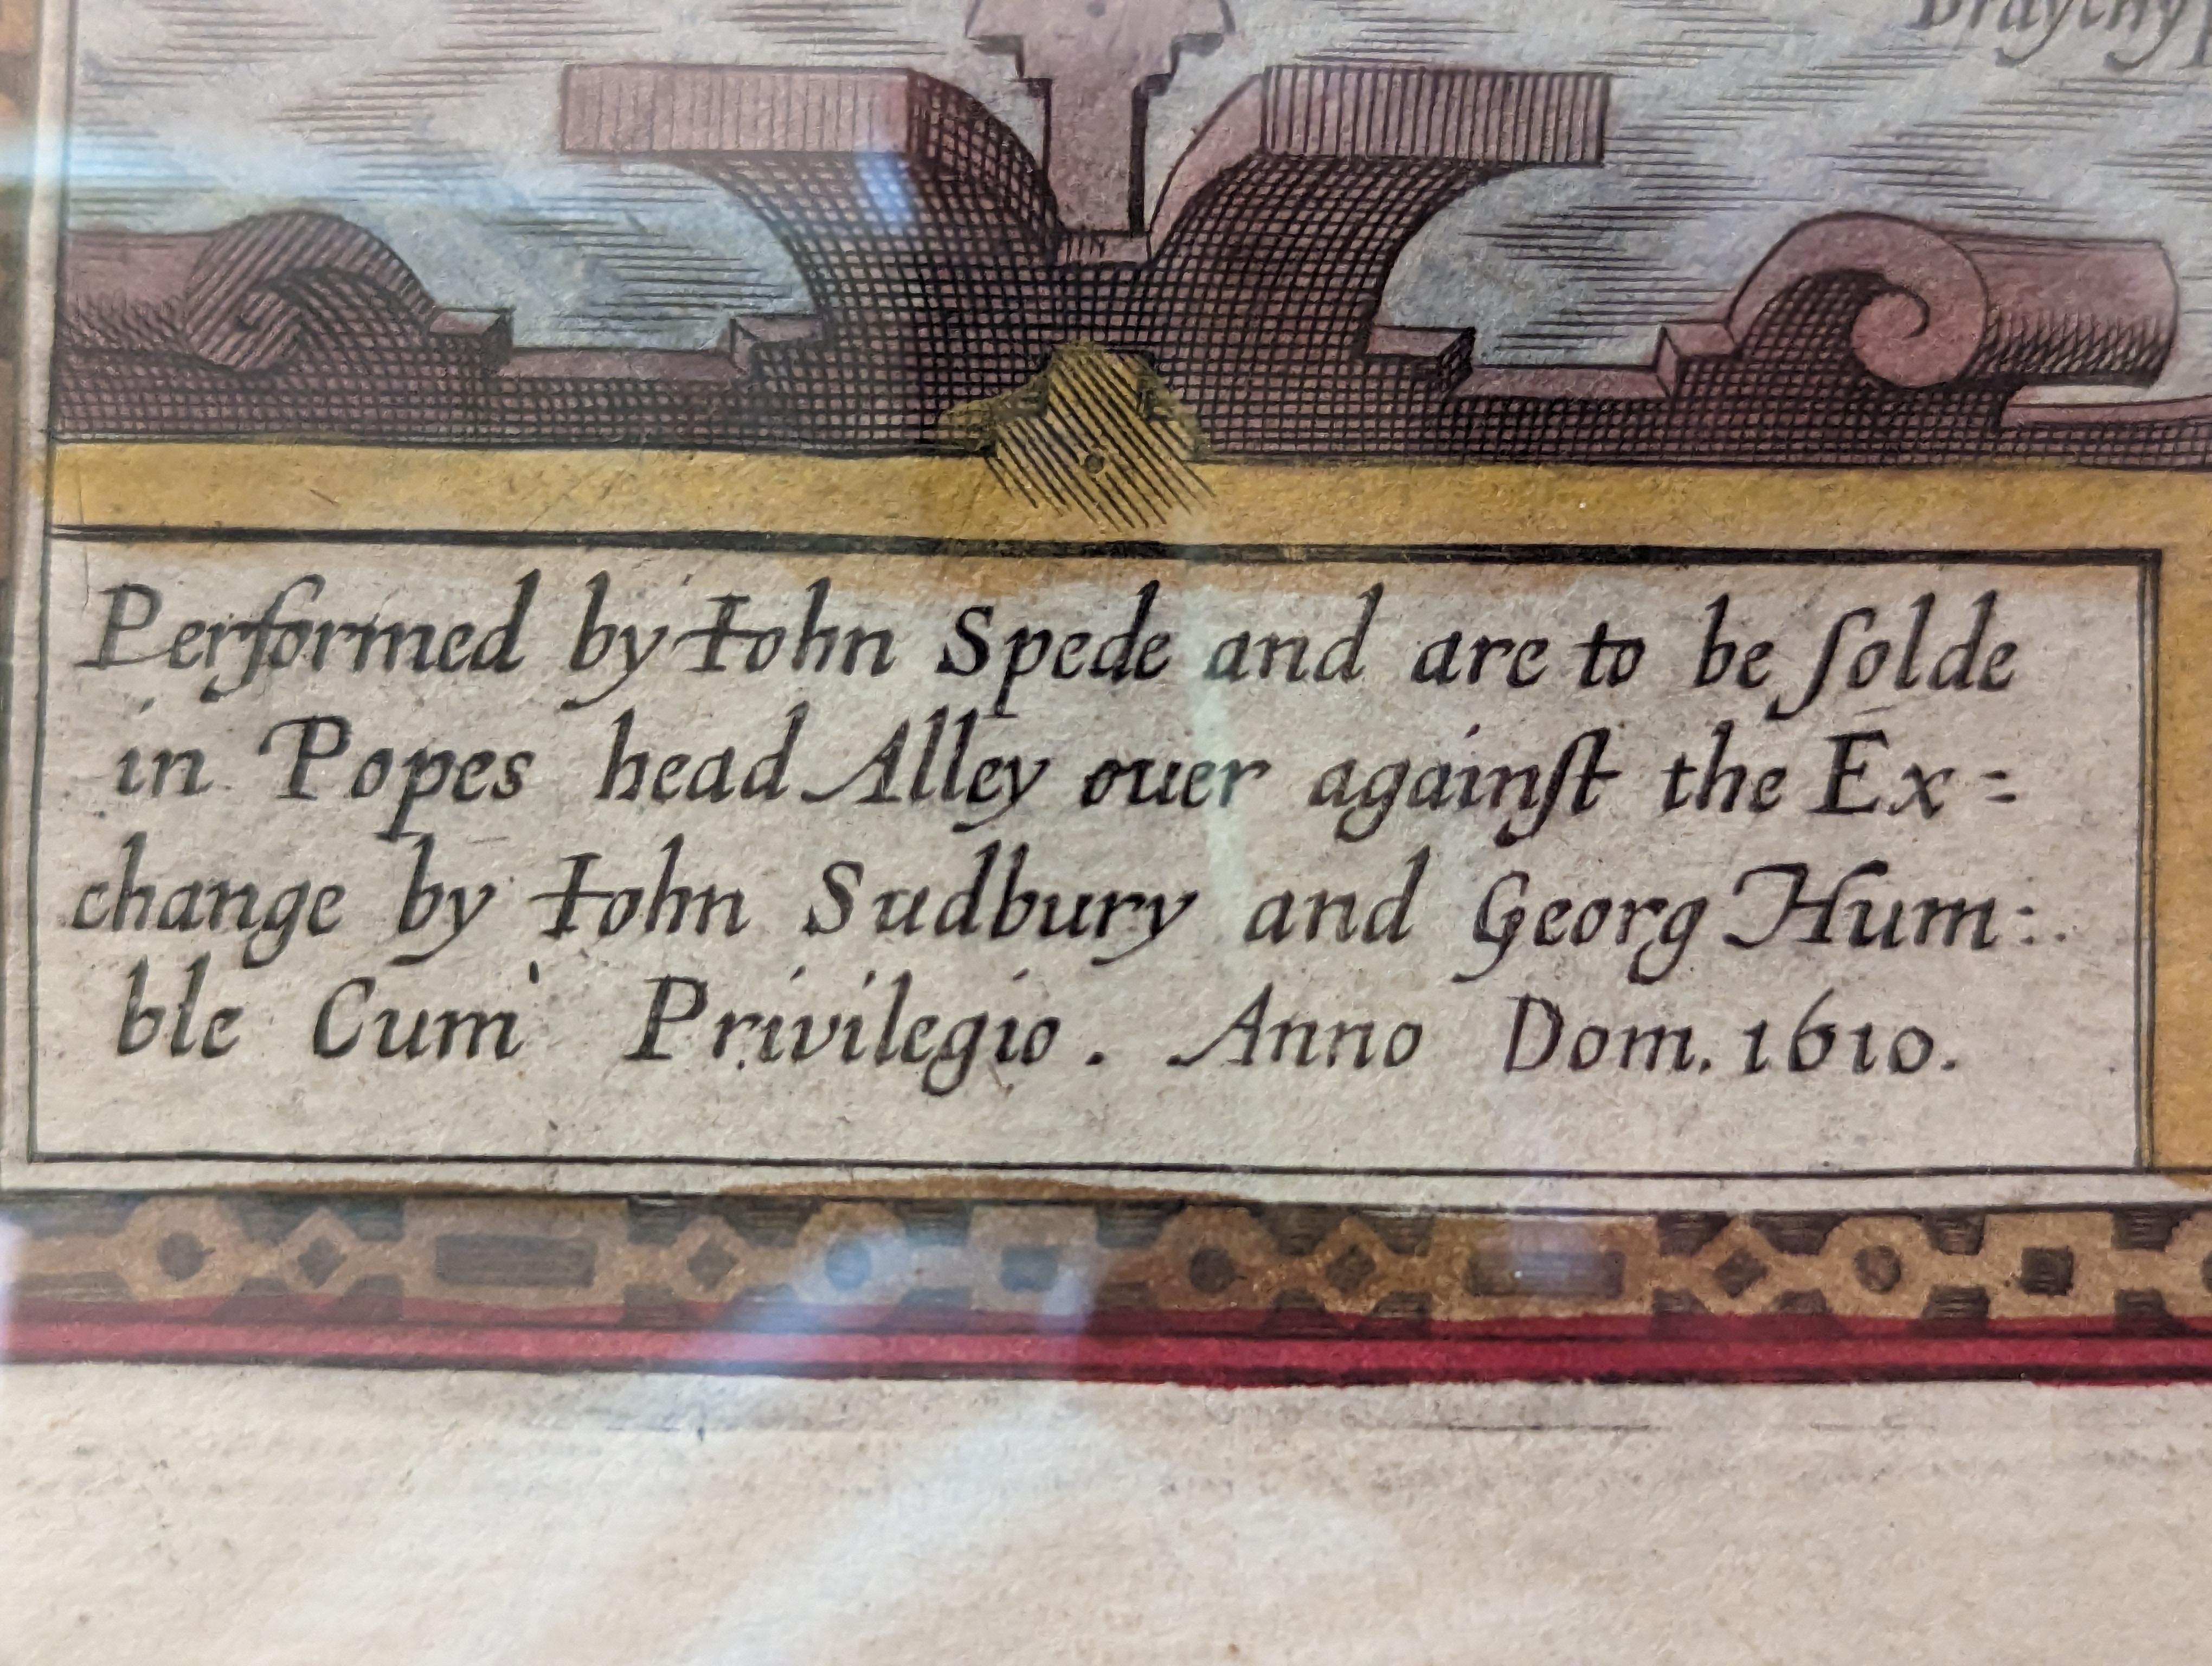 Performed by Iohn Spede and are to be ſolde
in Popes head Alley ouer againſt the Ex=
change by Iohn Sudbury and Georg Hum:
ble Cum Privilegio. Anno Dom. 1610.